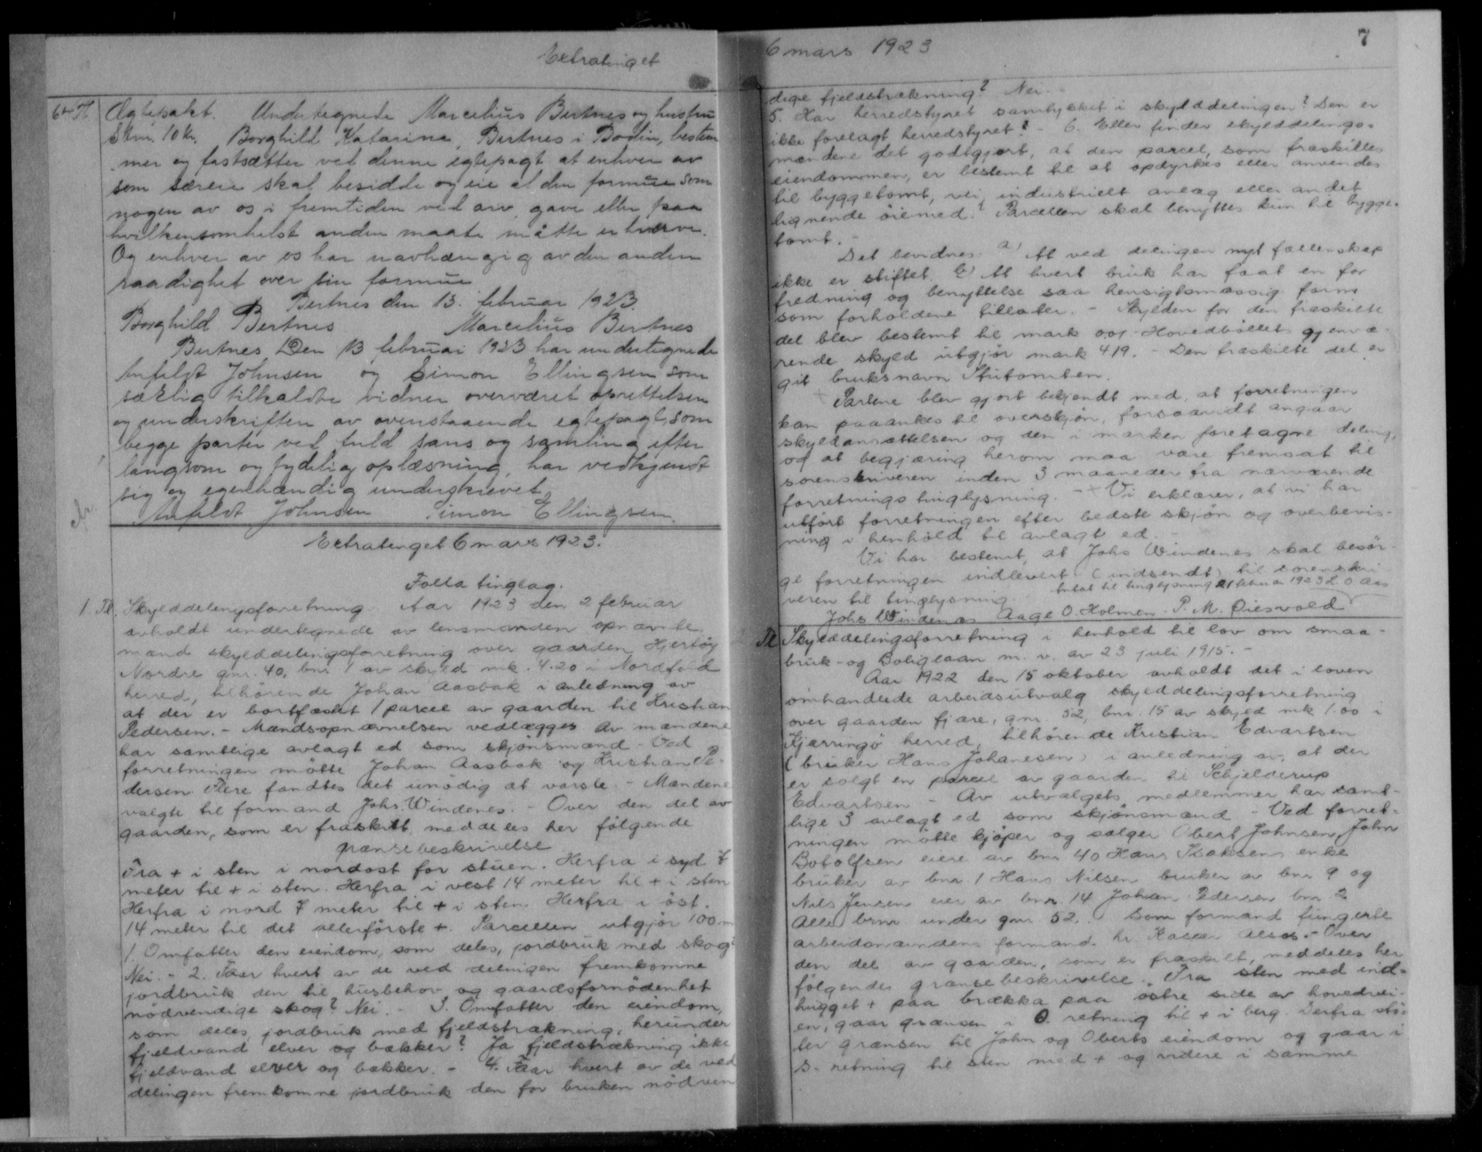 Extratinget
64 H Ægtepakt. Undertegnede Marcelius Bertnes og hustru
Stm. 10 kr. Borghild Katarina Bertnes i Bodin, bestem
mer og fastsætter ved denne egtepagt at enhver av
som særeie skal besidde og eie al den formue som
nogen av os i fremtiden ved arv, gave eller paa
hvilkensomhelst anden maate måtte erhverve.
Og enhver av os har uavhængig av den anden
raadighet over sin formue
Bertnes den 13. februar 1923
Borghild Bertnes Marcelius Bertnes
Bertnes, Den 13 februar 1923 har undertegnede
Anfeldt Johnsen og Simon Ellingsen som
særlig tilkaldte vidner overværet oprettelsen
og underskriften av ovenstaaende egtepagt, som
begge parter ved fuld sans og samling efter
langsom og tydelig oplæsning, har vedkjendt
sig og egenhændig underskrevet.
Anfeldt Johnsen Simon Ellingsen.
Extratinget 6 mars 1923.
Folla tinglag.
1. Skylddelingsforretning Aar 1923 den 2 februar
avholdt undertegnede av lensmanden opnævnte
mænd skylddelingsforretning over gaarden Hjertøy
Nordre gnr. 40, bnr 1 av skyld mk. 4.20 i Nordfold
herred, tilhörende Johan Aasbak i anledning av
at der er bortfæstet 1 parcel av gaarden til Kristian
Pedersen. - Mandsopnævnelsen vedlægges Av mændene
har samtlige avlagt ed som skjönsmænd - Ved
forretningen mötte Johan Aasbak og Kristian Pe-
dersen Flere fandtes det unödig at varsle. - Mændene
valgte til formand Johs. Windenes. - Over den del av
gaarden, som er fraskilt meddeles her fölgende
grænsebeskrivelse
Fra + i sten i nordost for stuen. Herfra i syd 7
meter til + i sten. Herfra i vest 14 meter til + i sten
Herfra i nord 7 meter til + i sten Herfra i öst.
14 meter til det allerförste +. Parcellen utgjör 100 m
1. Omfatter den eiendom, som deles, jordbruk med skog?
Nei. - 2. Faar hvert av de ved delingen fremkomne
jordbruk den til husbehov og gaardsfornödenhet
nödvendige skog? Nei. - 3. Omfatter den eiendom,
som deles jordbruk med fjeldstrækning, herunder
fjeldvand elver og bækker? Ja fjeldstrækning ikke
fjeldvand elver og bækker. - 4. Faar hvert av de ved
delingen fremkomne jordbruk den for bruken nödven
6 mars 1923
7
dige fjeldstrækning? Nei.
5. Har herredstyret samtykket i skylddelingen? Den er
ikke forelagt herredstyret? - 6. Eller finder skylddelings-
mændene det godtgjort, at den parcel, som fraskilles
eiendommen, er bestemt til at opdyrkes eller anvendes
til byggetomt, vei, industrielt anlæg eller andet
lignende öiemed? Parcellen skal benyttes kun til bygge-
tomt. -
Det bevidnes: a) At ved delingen nyt fællesskap
ikke er stiftet, b) At hvert bruk har faat en for
fredning og benyttelse saa hensigtsmæssig form
som forholdene tillater. - Skylden for den fraskilte
del blev bestemt til mark 0.01 - Hovedböllets gjenvæ-
rende skyld utgjör mark 4.19. - Den fraskilte del er
git bruksnavn
Partene blev gjort bekjendt med, at forretningen
kan paaankes til overskjön, forsaavidt angaar
skyldansættelsen og den i marken foretagne deling,
og at begjæring herom maa være fremsat til
sorenskriveren inden 3 maaneder fra nærværende
forretnings tinglysning. - Vi erklærer, at vi har
utfört forretningen efter bedste skjön og overbevis-
ning i henhold til avlagt ed.
Vi har bestemt, at Johs Windenes skal besör-
ge forretningen indlevert (indsendt) til sorenskri-
veren til tinglysning.
til tinglysning 21 februar 1923
Johs Windenes Aage O. Holmen. P. M.
Skylddelingsforretning i henhold til lov om smaa-
bruk- og Boliglaan m. v. av 23 juli 1915. -
Aar 1922 den 15 oktober avholdt det i loven
omhandlede arbeidsutvalg skylddelingsforretning
over gaarden fjære, gnr. 52, bnr. 15 av skyld mk 1.00 i
Kjærringö herred, tilhörende Kristian Edvartsen
(bruker Hans Johanesen) i anledning av, at der
er solgt en parcel av gaarden til Schjelderup
Edvartsen - Av utvalgets medlemmer har samt-
lige 3 avlagt ed som skjönsmænd - Ved forret-
ningen mötte kjöper og sælger Obert Johnsen, John
Botolfsen eiere av bnr 40 Hans Isaksens enke
bruker av bnr. 1 Hans Nilsen bruker av bnr 9 og
Nils Jensen eier av bnr. 14 Johan Pedersen bnr. 2
Alle brnr under gnr 52. Som formand fungerte
arbeidsnævndens formand hr. Kasper - Over
den del av gaarden, som er fraskilt, meddeles her
fölgende grænsebeskrivelse. Fra sten med ind-
hugget + paa brækka paa östre side av hovedvei-
en, gaar grænsen i O retning til + i berg. Derfra stö-
ter grænsen til John og Oberts eiendom og gaar i
S. retning til sten med + og videre i samme